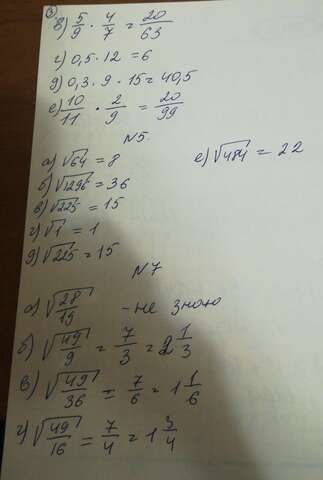 ③
в) 5/9 · 4/7 = 20/63
г) 0,5 · 12 = 6
д) 0,3 · 9 · 15 = 40,5
е) 10/11 · 2/9 = 20/99
N5.
а) √64 = 8 е) √484 = 22
б) √1296 = 36
в) √225 = 15
г) √1 = 1
д) √225 = 15
N7
а) √28/19 - не знаю
б) √49/9 = 7/3 = 2 1/3
в) √49/36 = 7/6 = 1 1/6
г) √49/16 = 7/4 = 1 3/4